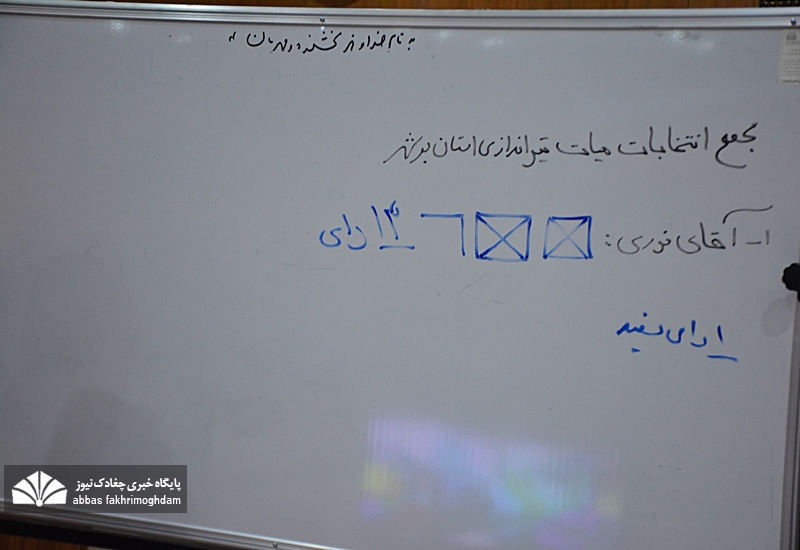 به نام خداوند بخشنده و مهربان
مجمع انتخابات هیات تیراندازی استان بوشهر
۱- آقای نوری: ۱۳ رای
۱ رای سفید
پایگاه خبری چغادک نیوز
abbas fakhrimoghdam